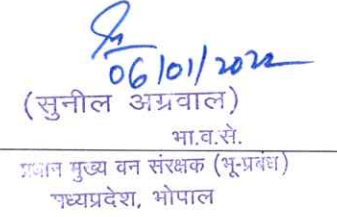 06/01/2022
(सुनील अग्रवाल)
भा.व.से.
प्रधान मुख्य वन संरक्षक (भू-प्रबंध)
मध्यप्रदेश, भोपाल